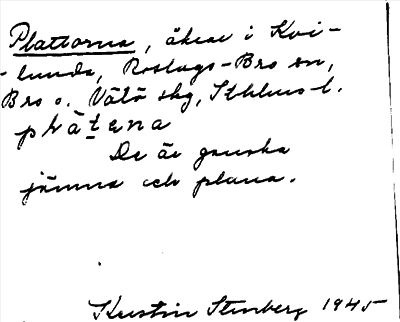 Plattorna, åkrar i Kvi-
-lunda, Roslags-Bro sn,
Bro o. Vätö skg, Sthlms l.
plät̲ena
De är ganska
jämna och plana.
Kerstin Stenberg 1945